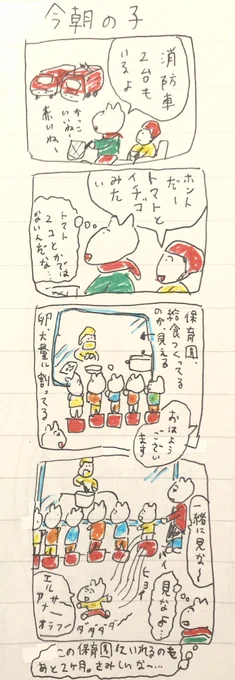 今朝の子
消防車
２台も
いるよ
かっこ
いいね〜
赤いね、
ホント
だー
トマトと
イチゴ
みたい
トマト
２コとかでは
ないんだな…
保育園、
給食つくってる
のが見える
おはよう
ござい
ます
卵大量に割ってる
一緒に見な〜
見なよ…
ヒョイ
エルサー
アナー
オラフー
ダダダダダ
この保育園にいれるのも
あと2ヶ月。さみしいな〜…